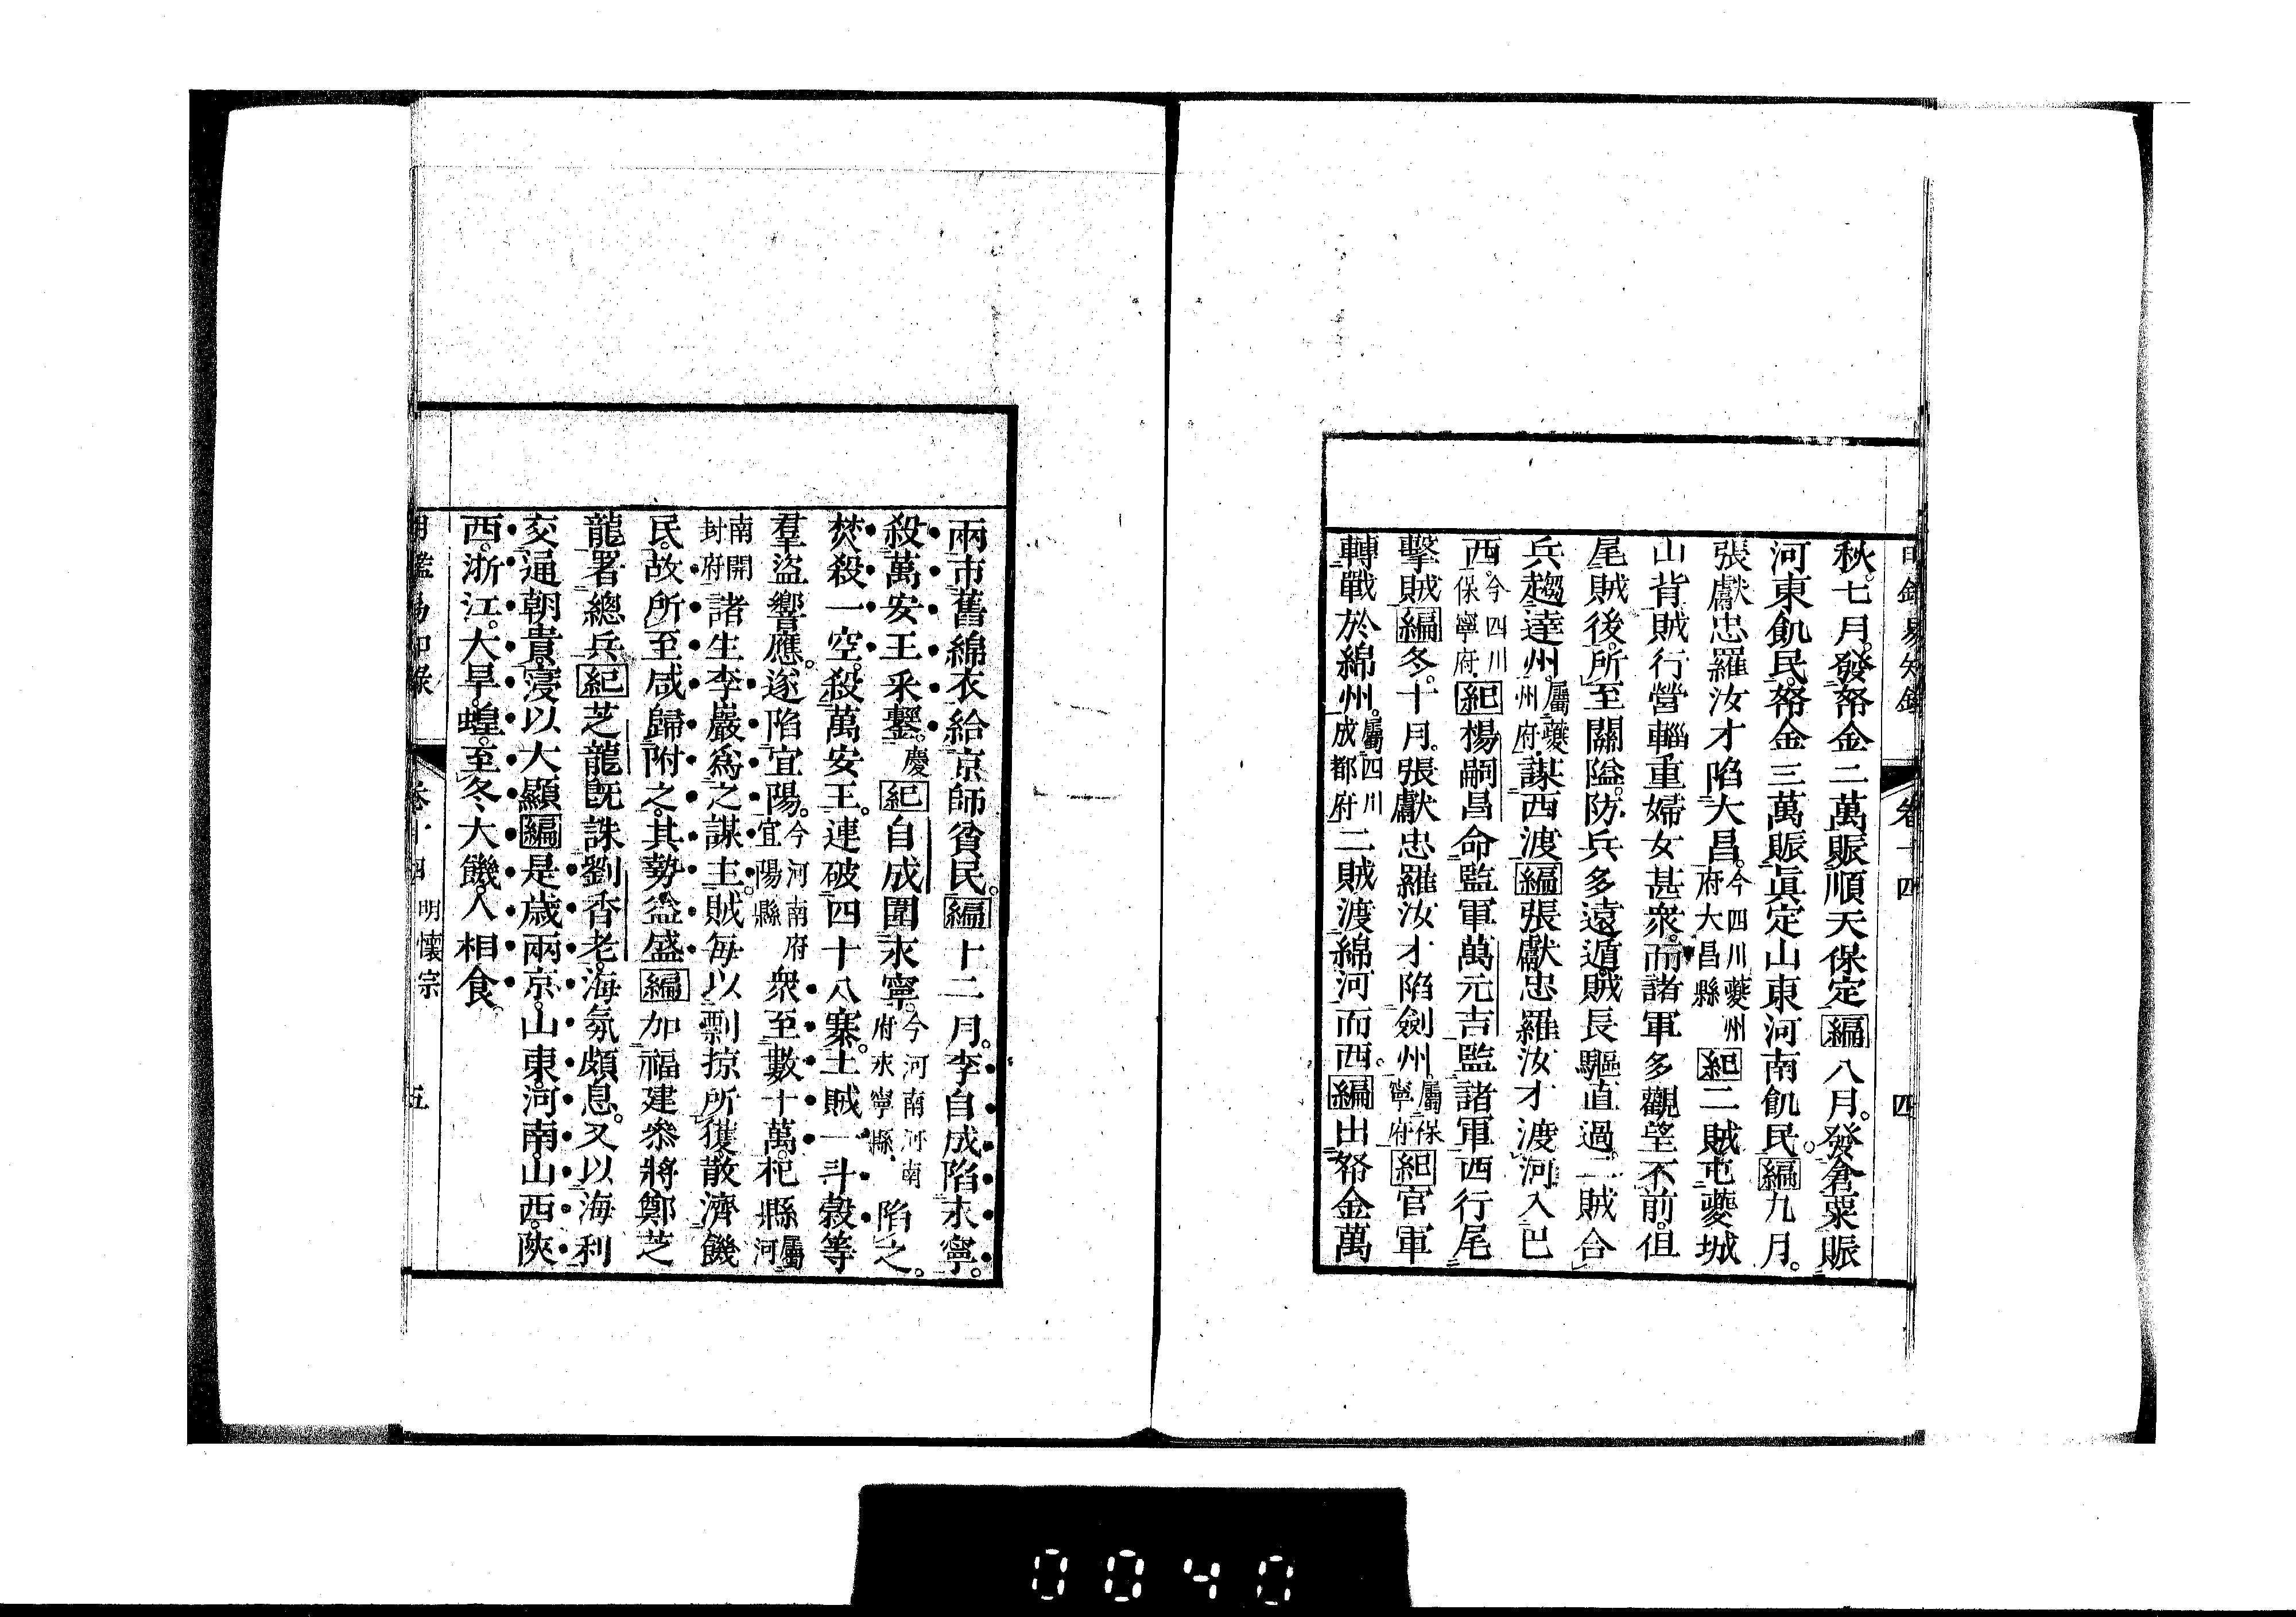 明鑑易知錄 卷十四 四
秋。七月。發帑金二萬賑順天保定編八月。發倉粟賑
河東飢民。帑金三萬賑眞定山東河南飢民。編九月。
張獻忠羅汝才陷大昌。今四川夔州府大昌縣紀二賊屯夔城
山背賊行營輜重婦女甚衆。而諸軍多觀望不前。徂
尾賊後。所至關隘。防兵多遠遁。賊長驅直過。二賊合
兵趨達州。屬夔州府謀西渡編張獻忠羅汝才渡河入巴
西。今四川保寧府紀楊嗣昌命監軍萬元吉監諸軍西行尾
擊賊編冬。十月。張獻忠羅汝才陷劍州。屬保寧府紀官軍
轉戰於綿州。屬四川成都府二賊渡綿河而西。編出帑金萬
兩市舊綿衣給京師貧民。編十二月。李自成陷永寧。
殺萬安王采鑋。慶紀自成圍永寧。今河南河南府永寧縣陷之。
焚殺一空。殺萬安王。連破四十八寨。土賊一斗穀等
羣盜響應。遂陷宜陽。今河南府宜陽縣衆至數十萬。杞縣屬河
南開封府諸生李巖爲之謀主。賊每以剽掠所獲。散濟饑
民。故所至咸歸附之。其勢益盛編加福建參將鄭芝
龍署總兵紀芝龍旣誅劉香老。海氛頗息。又以海利
交通朝貴。寖以大顯編是歲兩京。山東。河南。山西。陝
西。浙江。大旱。蝗。至冬大饑。人相食。
明鑑易知錄 卷十四 明懷宗 五
0040